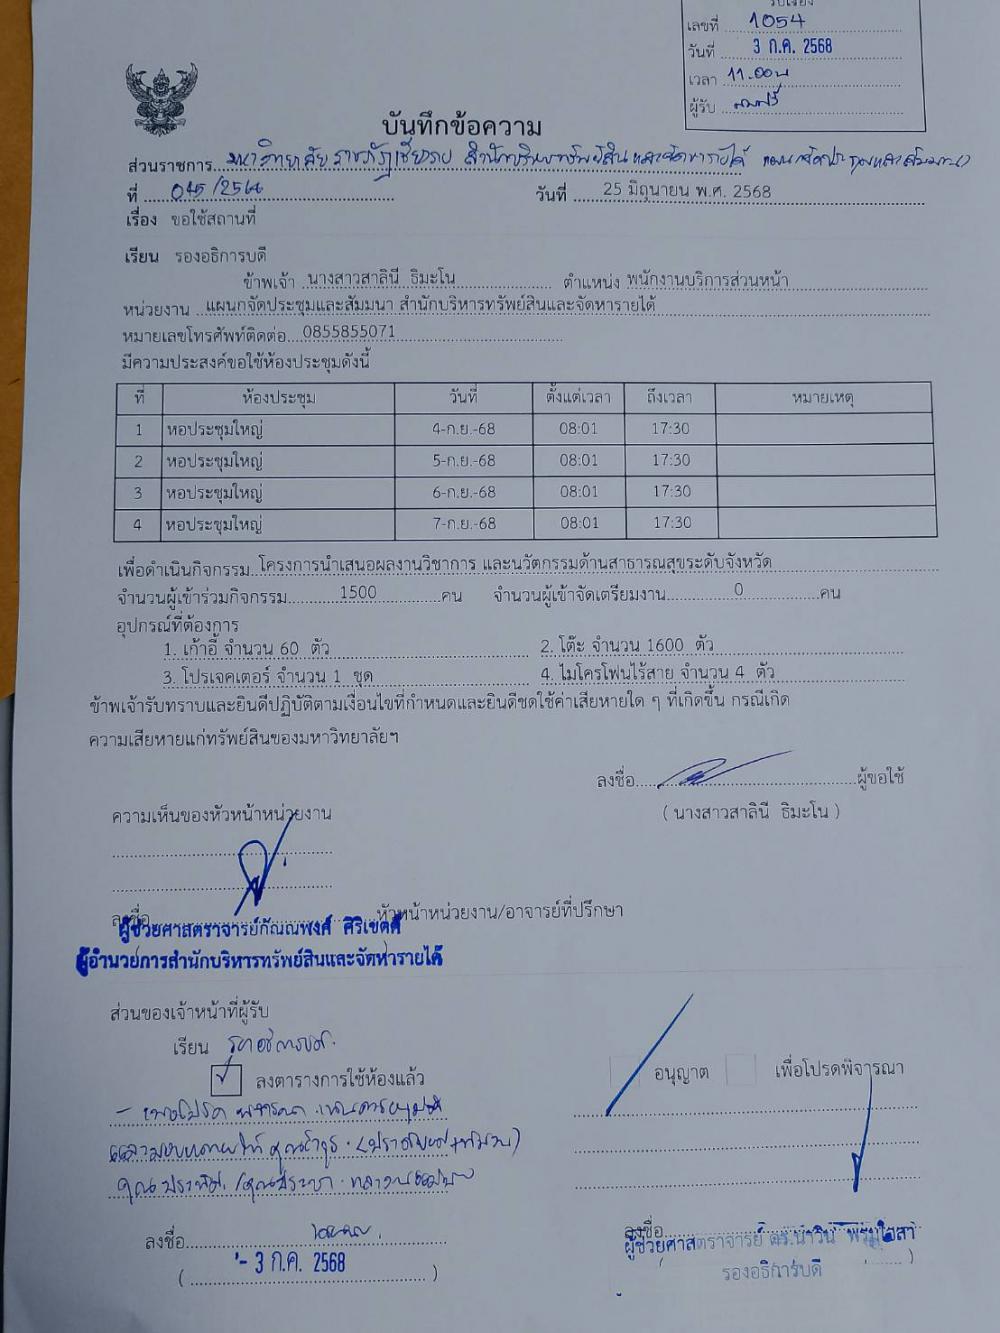 รับเรื่อง
เลขที่ 1054
วันที่ 3 ก.ค. 2568
เวลา 11.00น
ผู้รับ
บันทึกข้อความ
ส่วนราชการ มหาวิทยาลัยราชภัฏเชียงราย สำนักบริหารทรัพย์สินและจัดหารายได้ แผนกจัดประชุมและสัมมนา
ที่ 045/2568 วันที่ 25 มิถุนายน พ.ศ. 2568
เรื่อง ขอใช้สถานที่
เรียน รองอธิการบดี
ข้าพเจ้า นางสาวสาลินี ธิมะโน ตำแหน่ง พนักงานบริการส่วนหน้า
หน่วยงาน แผนกจัดประชุมและสัมมนา สำนักบริหารทรัพย์สินและจัดหารายได้
หมายเลขโทรศัพท์ติดต่อ 0855855071
มีความประสงค์ขอใช้ห้องประชุมดังนี้
ที่ ห้องประชุม วันที่ ตั้งแต่เวลา ถึงเวลา หมายเหตุ
1 หอประชุมใหญ่ 4-ก.ย.-68 08:01 17:30
2 หอประชุมใหญ่ 5-ก.ย.-68 08:01 17:30
3 หอประชุมใหญ่ 6-ก.ย.-68 08:01 17:30
4 หอประชุมใหญ่ 7-ก.ย.-68 08:01 17:30
เพื่อดำเนินกิจกรรม โครงการนำเสนอผลงานวิชาการ และนวัตกรรมด้านสาธารณสุขระดับจังหวัด
จำนวนผู้เข้าร่วมกิจกรรม 1500 คน จำนวนผู้เข้าจัดเตรียมงาน 0 คน
อุปกรณ์ที่ต้องการ
1. เก้าอี้ จำนวน 60 ตัว 2. โต๊ะ จำนวน 1600 ตัว
3. โปรเจคเตอร์ จำนวน 1 ชุด 4. ไมโครโฟนไร้สาย จำนวน 4 ตัว
ข้าพเจ้ารับทราบและยินดีปฏิบัติตามเงื่อนไขที่กำหนดและยินดีชดใช้ค่าเสียหายใด ๆ ที่เกิดขึ้น กรณีเกิด
ความเสียหายแก่ทรัพย์สินของมหาวิทยาลัยฯ
ลงชื่อ ผู้ขอใช้
( นางสาวสาลินี ธิมะโน )
ความเห็นของหัวหน้าหน่วยงาน
ลงชื่อ หัวหน้าหน่วยงาน/อาจารย์ที่ปรึกษา
ผู้ช่วยศาสตราจารย์กัณณพงศ์ ศิริเขตต์
ผู้อำนวยการสำนักบริหารทรัพย์สินและจัดหารายได้
ส่วนของเจ้าหน้าที่ผู้รับ
เรียน รองอธิการบดี
ลงตารางการใช้ห้องแล้ว
อนุญาต เพื่อโปรดพิจารณา
- เพื่อโปรดพิจารณา
ลงชื่อ
- 3 ก.ค. 2568
ลงชื่อ
ผู้ช่วยศาสตราจารย์ ดร.นาวิน พรมใจสา
รองอธิการบดี